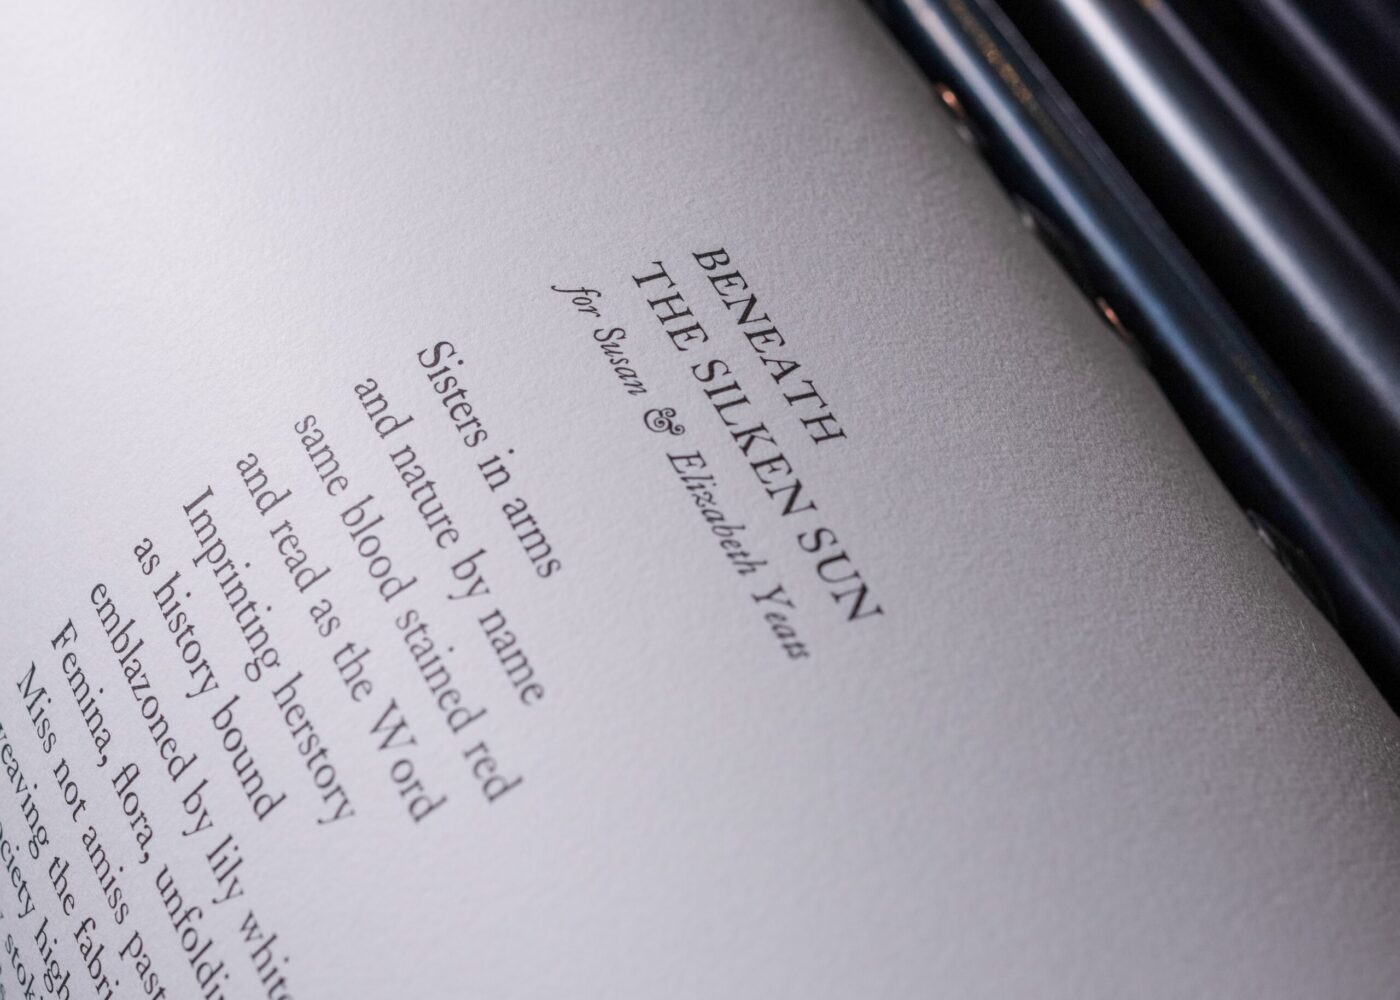 BENEATH
THE SILKEN SUN
for Susan & Elizabeth Yeats
Sisters in arms
and nature by name
same blood stained red
and read as the Word
Imprinting herstory
as history bound
emblazoned by lily white
Femina, flora,
Miss not amiss
the